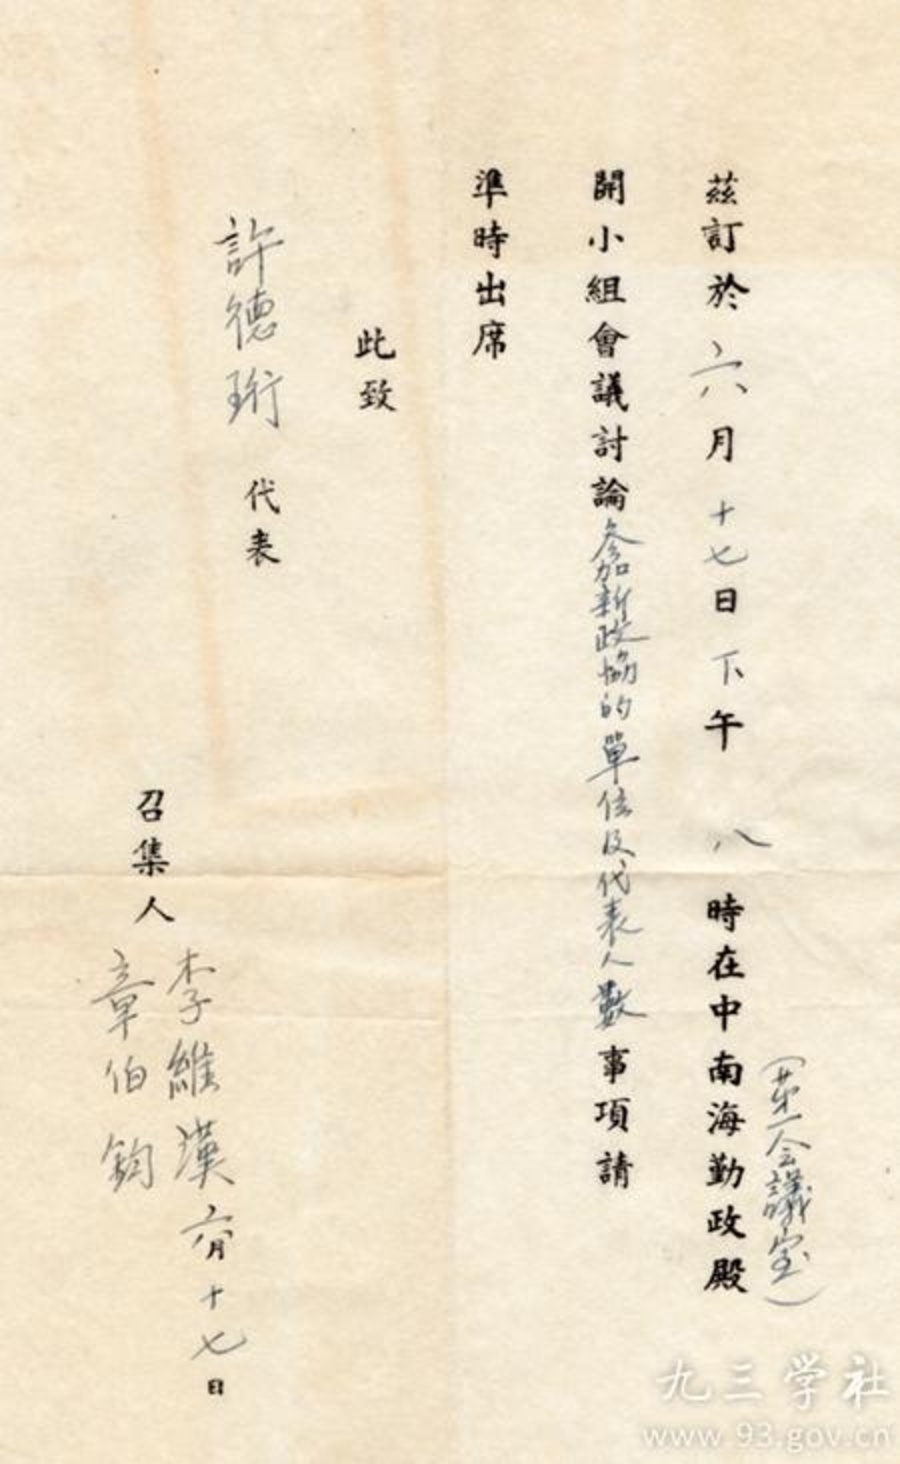 茲訂於六月十七日下午八時在中南海勤政殿
(第一会議室)
開小組會議討論參加新政協的單位及代表人數事項請
準時出席
此致
許德珩代表
召集人
李維漢
章伯鈞
六月十七日
九三学社
www.93.gov.cn